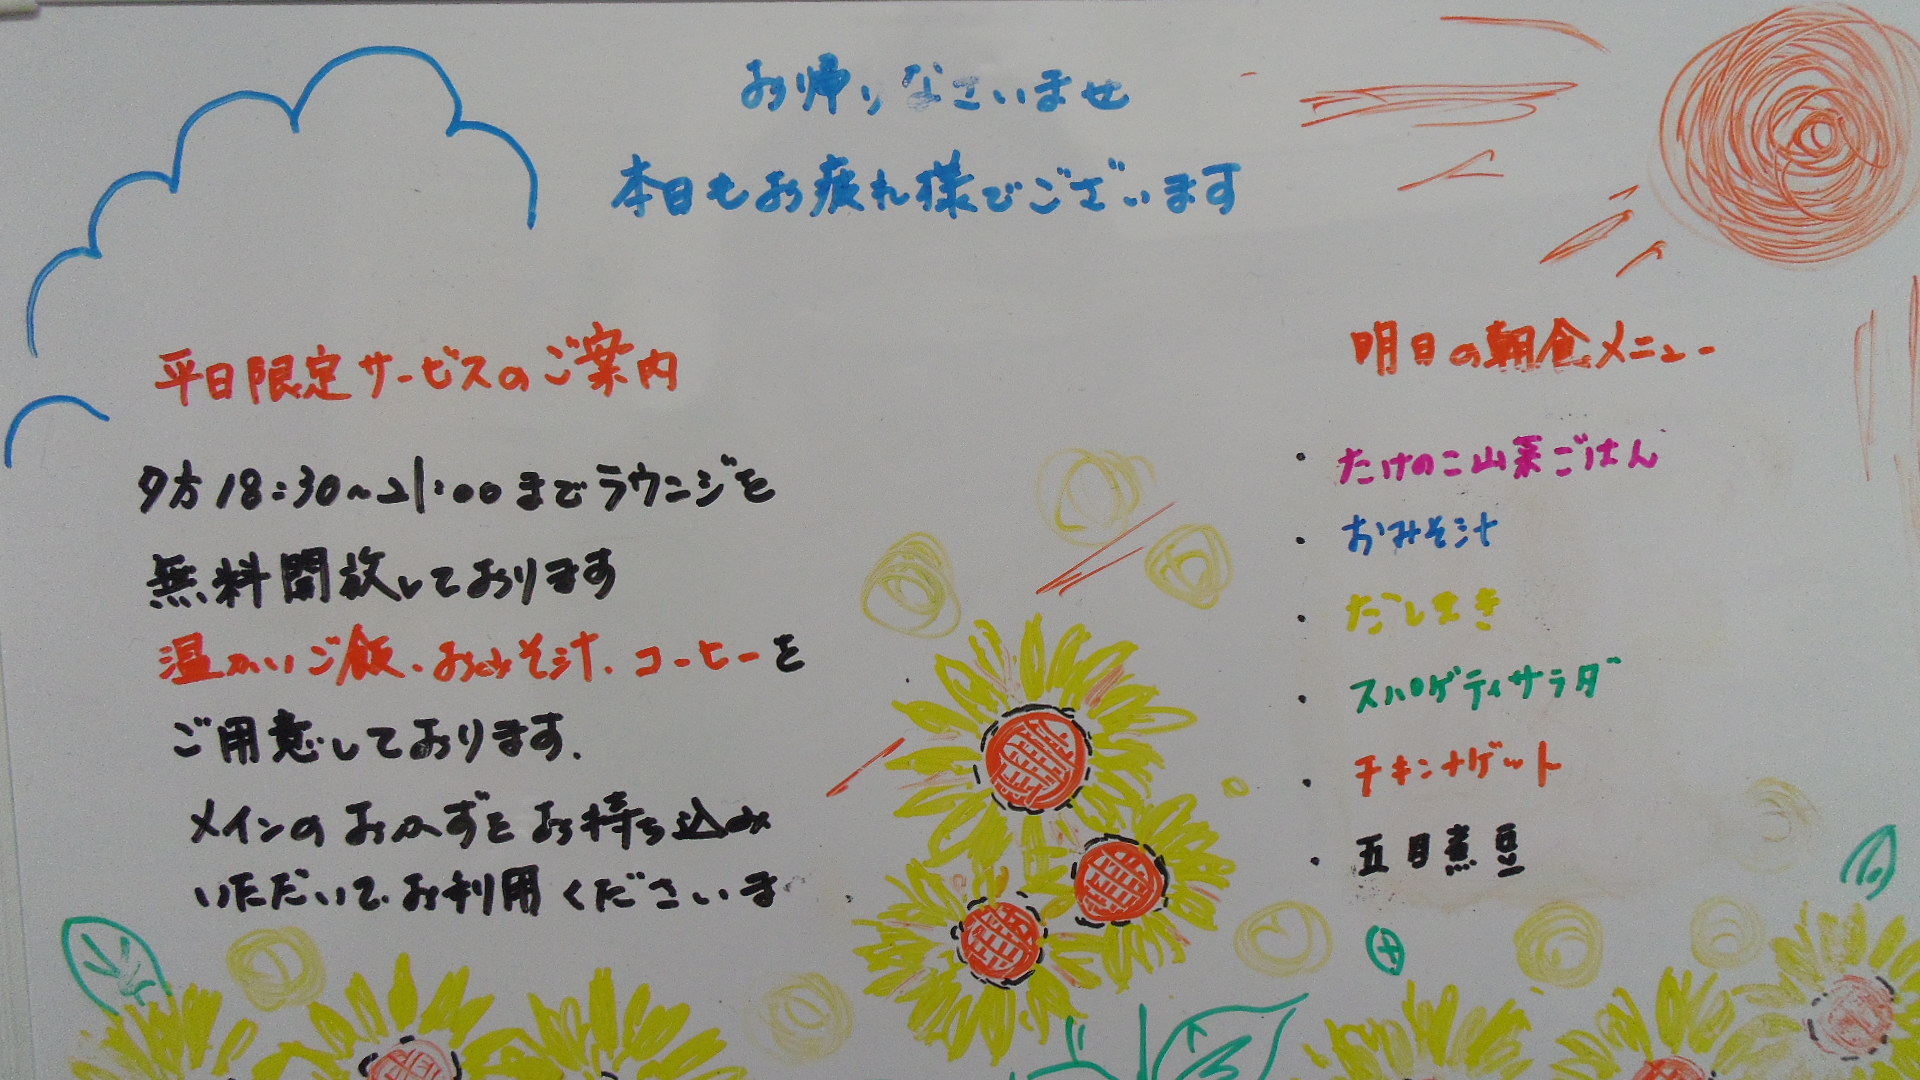 お帰りなさいませ
本日もお疲れ様でございます
平日限定サービスのご案内
夕方18:30～21:00までラウンジを
無料開放しております
温かいご飯、おみそ汁、コーヒーを
ご用意しております.
メインのおかずをお持ち込み
いただいて、お利用くださいま
明日の朝食メニュー
・たけのこ山菜ごはん
・おみそ汁
・だしまき
・スパゲティサラダ
・チキンナゲット
・五目煮豆